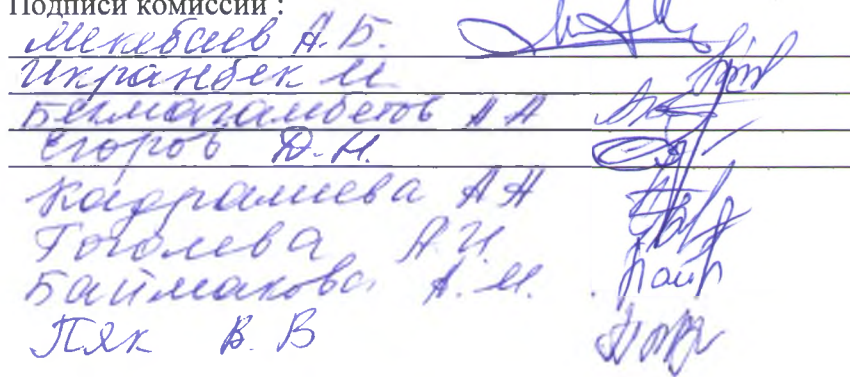 Подписи комиссии :
Мекебаев А.Б.
Икранбек И
Бекмагамбетов А А
Егоров Д.Н.
Кадралиева А А
Гоголева А.И.
Баймакова А.М.
Пяк В. В